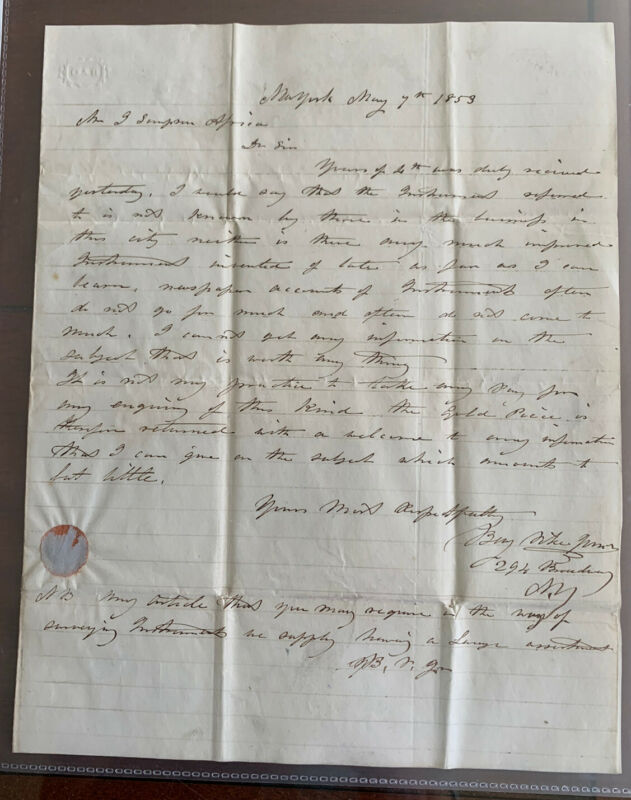 New York May 7th 1853
Mr J Simpson Africa
Dr Sir
Yours of 4th was duly received
yesterday. I would say that the Instrument referred
to is not known by those in the business in
this city neither is there any much improved
Instrument invented of late as far as I can
learn. newspaper accounts of Instruments often
do not go for much and often do not come to
much. I cannot get any information on the
subject that is worth any thing
It is not my practice to take any pay for
any enquiry of this kind the Gold Piece is
therefore returned with a welcome to any information
that I can give on the subject which amounts to
but little.
Yours Most Respectfully
Benj Pike Junr
294 Broadway
N.Y
NB Any article that you may require in the way of
surveying Instruments we supply having a Large assortment
B. P. Jr